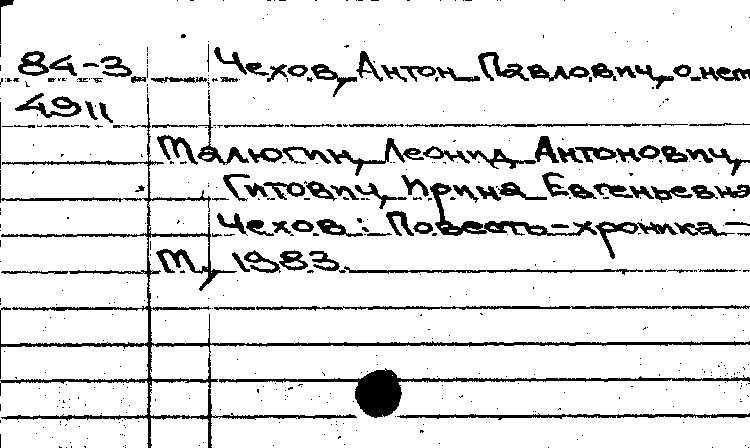 84-3 Чехов, Антон Павлович, о нем
4911
Малюгин, Леонид Антонович,
Гитович, Ирина Евгеньевна
Чехов: Повесть-хроника -
М., 1983.